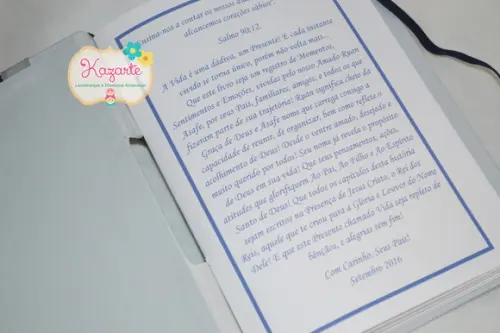 Kazarte
Ensina-nos a contar os nossos dias
alcancemos corações sábios".
Salmo 90:12.
A Vida é uma dádiva, um Presente! E cada instante
vivido se torna único, porém não volta mais...
Que este livro seja um registro de Momentos,
Sentimentos e Emoções, vividas pelo nosso Amado Ruan
Asafe, por seus Pais, familiares, amigos, e todos os que
fizeram parte de sua trajetória! Ruan significa cheio da
Graça de Deus e Asafe nomes que carrega consigo a
capacidade de reunir, de organizar, bem como reflete o
acolhimento de Deus! Desde o ventre amado, desejado e
muito querido por todos! Seu nome já revela o propósito
de Deus em sua vida! Que seus pensamentos, ações,
atitudes que glorifiquem Ao Pai, Ao Filho e Ao Espírito
Santo de Deus! Que todos os capítulos desta história
sejam escritos na Presença de Jesus Cristo, o Rei dos
Reis, aquele que te criou para a Glória e Louvor do Nome
Dele! E que este Presente chamado Vida seja repleto de
bênçãos, e alegrias sem fim!
Com Carinho, Seus Pais!
Setembro 2016